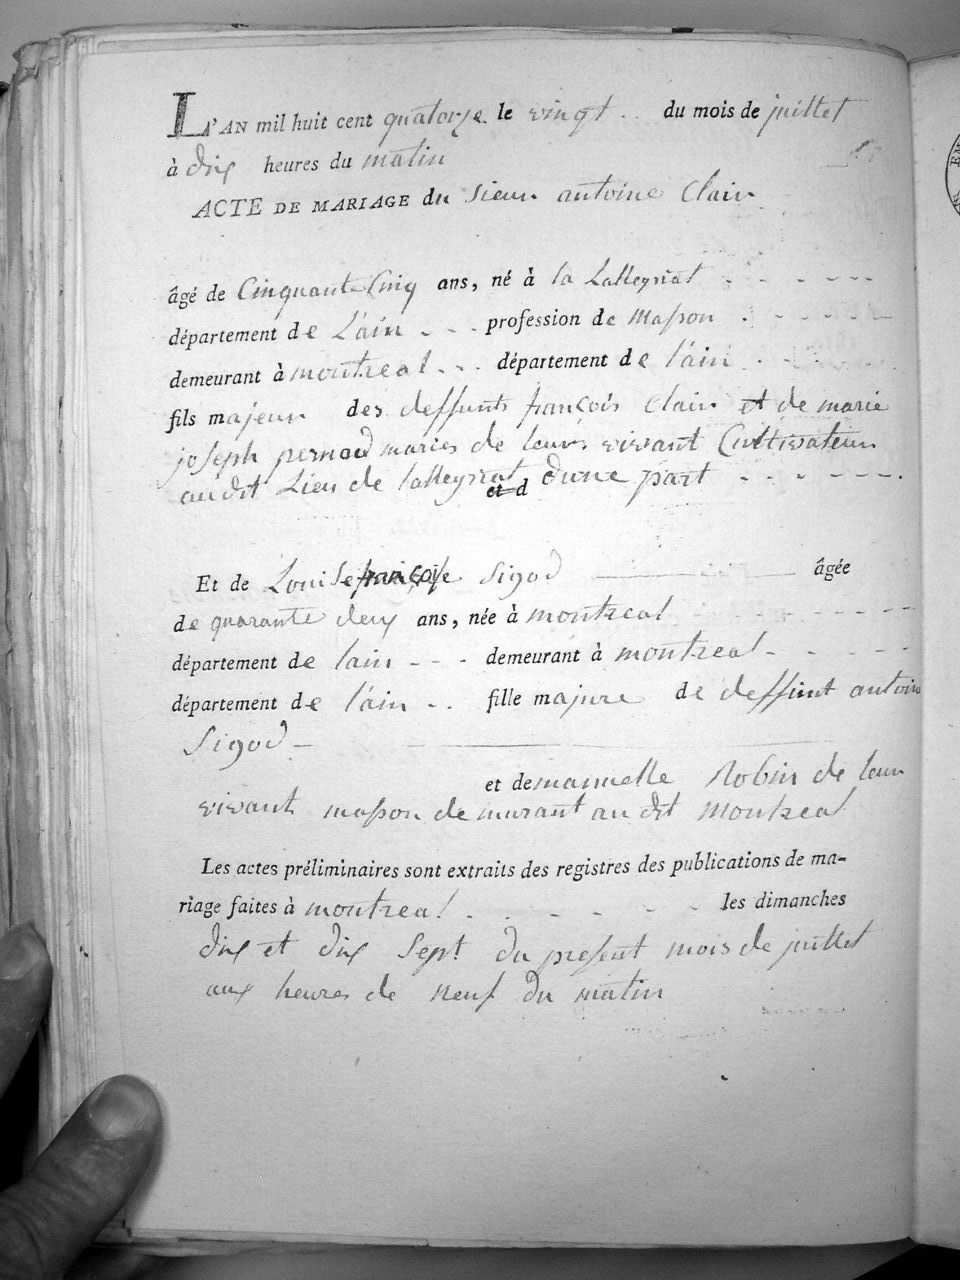 L'AN mil huit cent quatorze le vingt .. du mois de juillet
à dix heures du matin
ACTE DE MARIAGE du Sieur antoine Clair
âgé de Cinquante Cinq ans, né à la Lalleyriat
département de L'ain - - - profession de Masson
demeurant à montreal - - - département de l'ain
fils majeur des deffunts françois Clair et de marie
joseph pernod maries de leurs vivant Cultivateur
au dit Lieu de lalleyriat et d d'une part
Et de Louise françoise Sigod âgée
de quarante deux ans, née à montreal
département de lain - - - demeurant à montreal
département de l'ain .. fille majure de deffunt antoin
Sigod
et de manuelle Robin de leur
vivant masson demeurant au dit Montreal
Les actes préliminaires sont extraits des registres des publications de ma-
riage faites à montreal les dimanches
dix et dix Sept du present mois de juillet
aux heures de neuf du matin